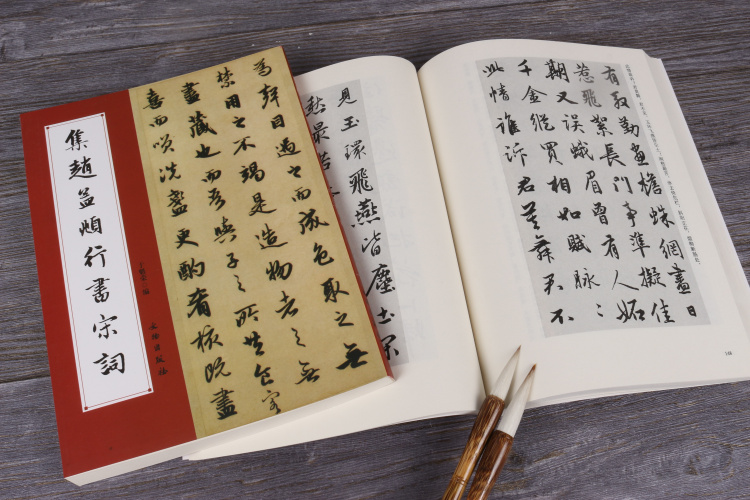 集趙孟頫行書宋詞
文物出版社
為聲目遇之而成色取之無
禁用之不竭是造物者之無
盡藏也而吾與子之所共食客
喜而咲洗盞更酌肴核既盡
有殷勤畫檐蛛網盡日
惹飛絮長門事準擬佳
期又誤蛾眉曾有人妬
千金縱買相如賦脈〻
此情誰訴君莫舞君不
見玉環飛燕皆塵土閑
愁最苦